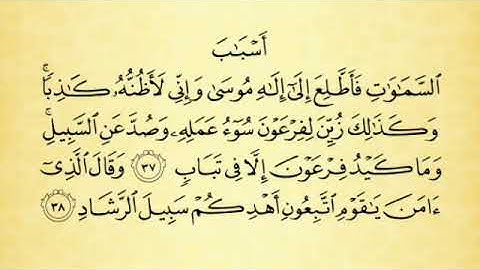 أَسْبَٰبَ
ٱلسَّمَٰوَٰتِ فَأَطَّلِعَ إِلَىٰٓ إِلَٰهِ مُوسَىٰ وَإِنِّي لَأَظُنُّهُۥ كَٰذِبٗاۚ
وَكَذَٰلِكَ زُيِّنَ لِفِرْعَوْنَ سُوٓءُ عَمَلِهِۦ وَصُدَّ عَنِ ٱلسَّبِيلِۚ
وَمَا كَيْدُ فِرْعَوْنَ إِلَّا فِي تَبَابٖ ٣٧ وَقَالَ ٱلَّذِيٓ
ءَامَنَ يَٰقَوْمِ ٱتَّبِعُونِ أَهْدِكُمْ سَبِيلَ ٱلرَّشَادِ ٣٨